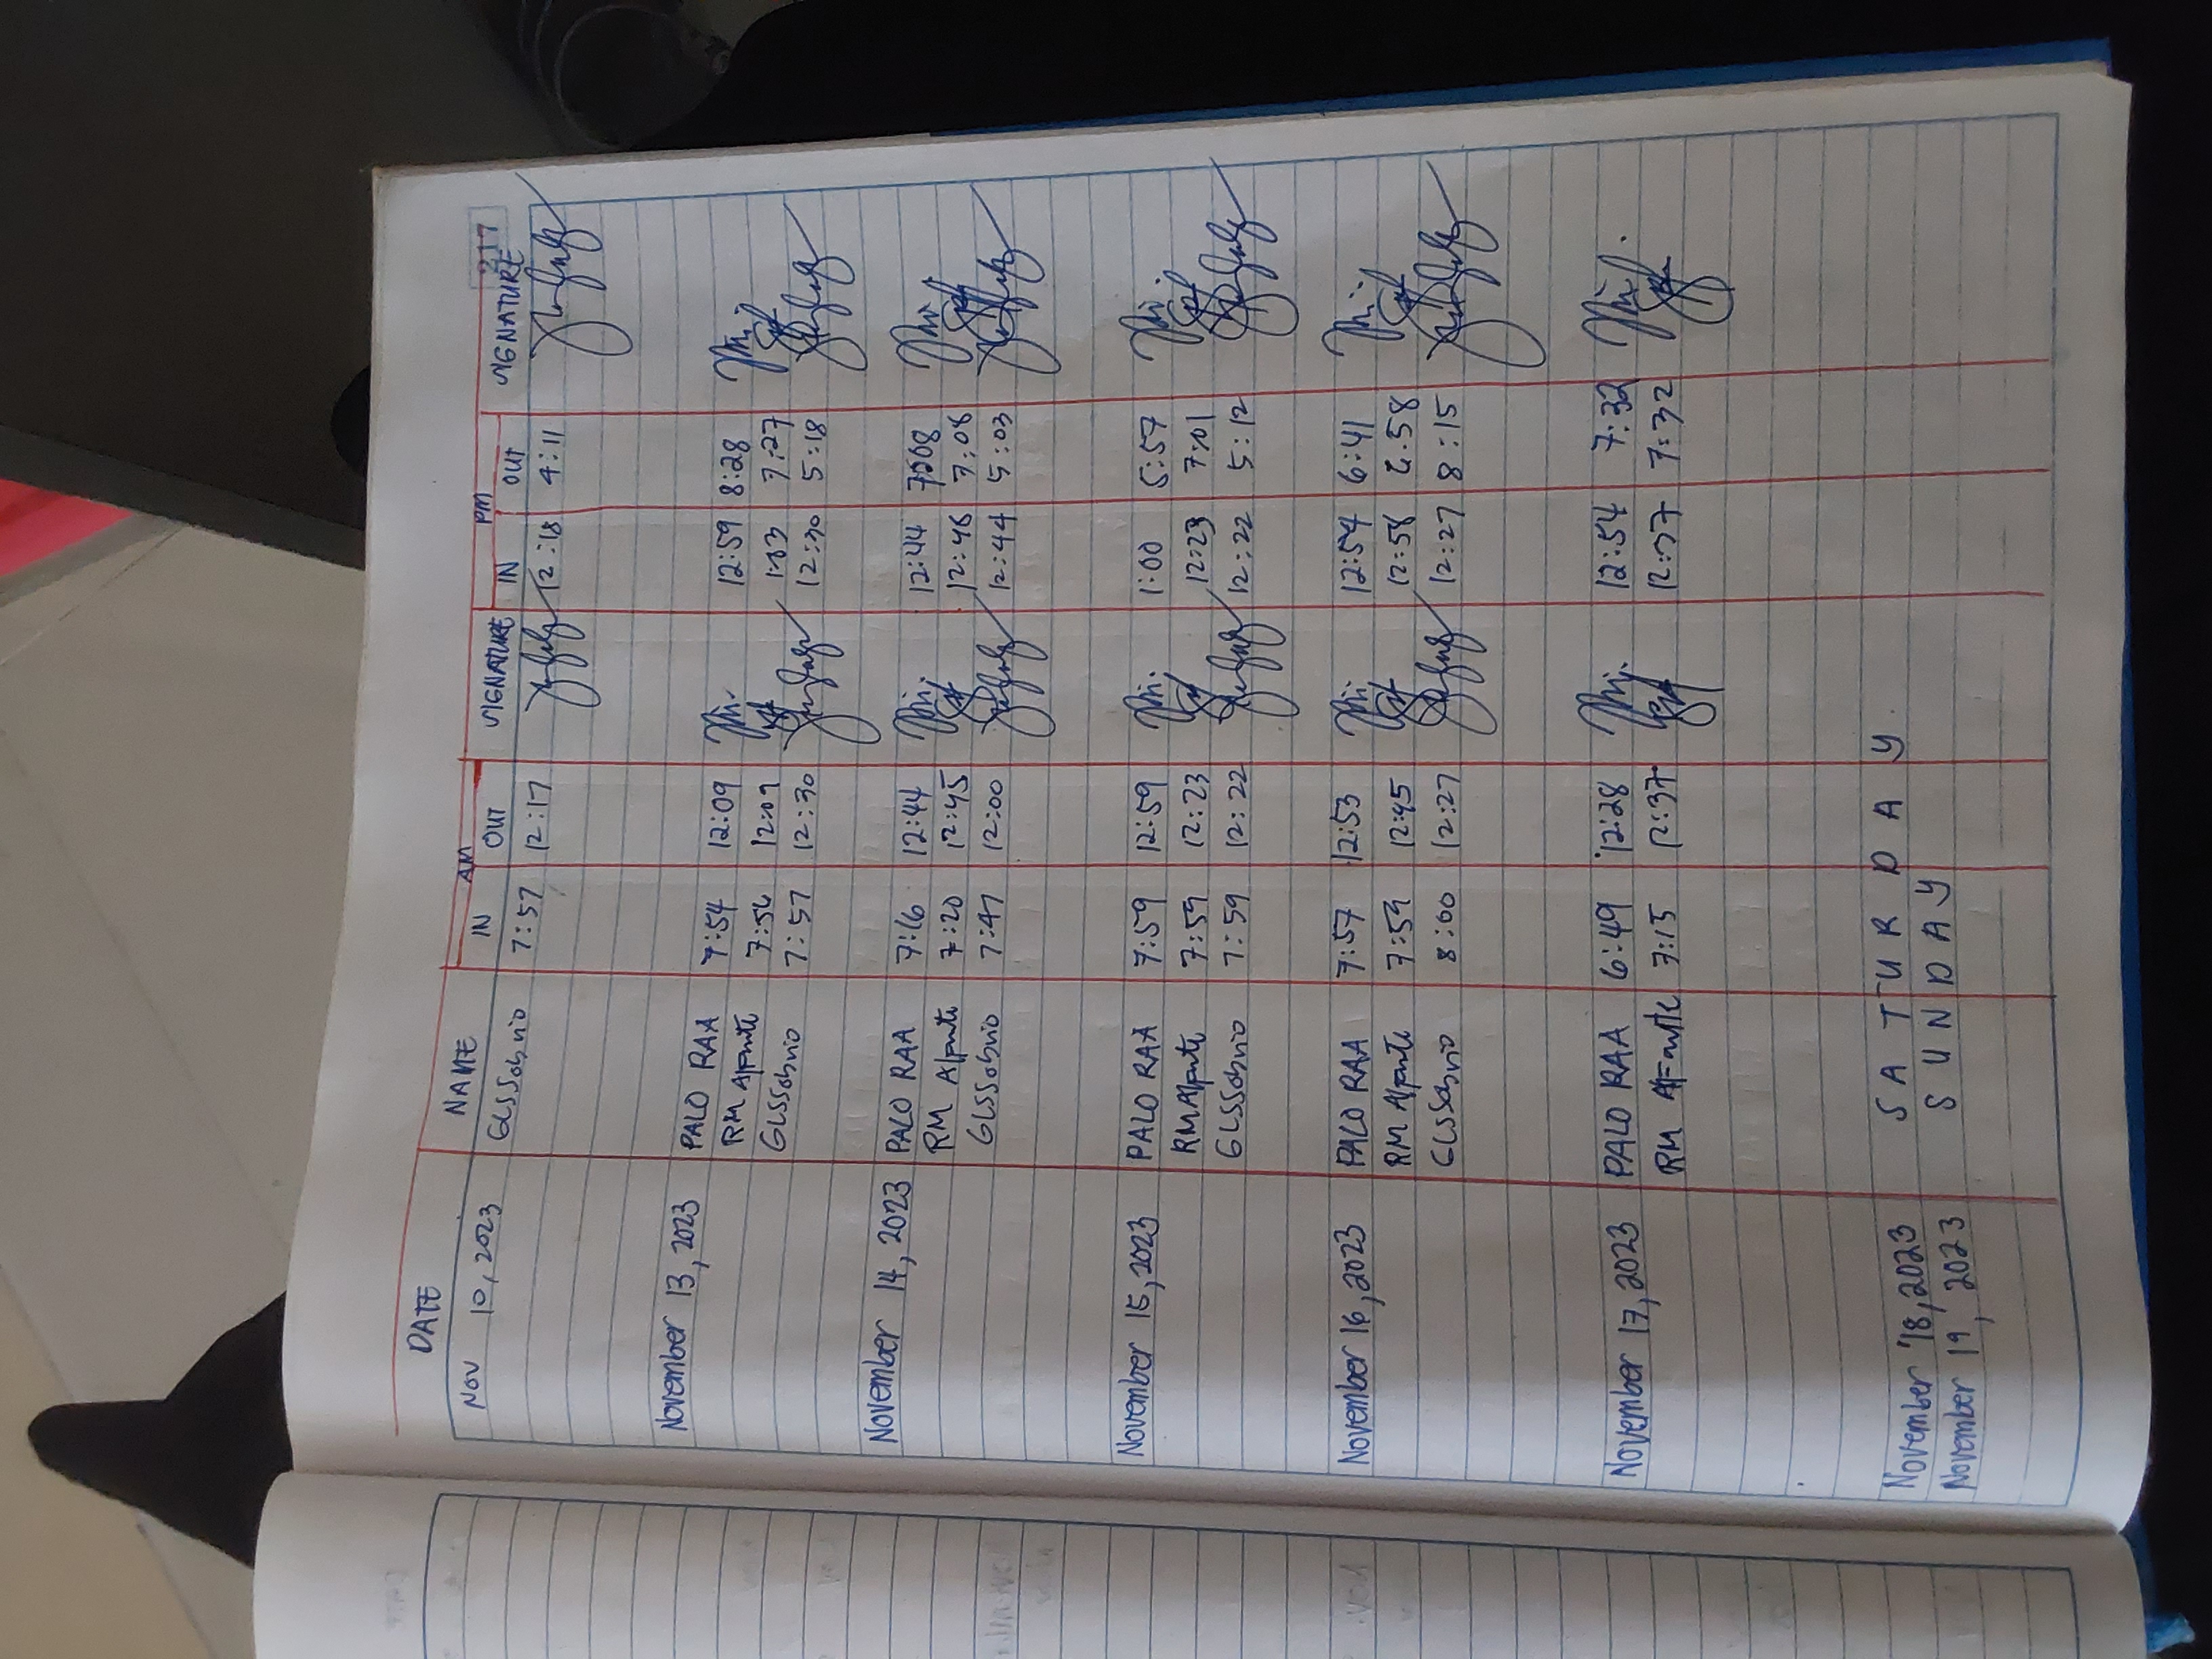 217
DATE NAME AM PM
IN OUT SIGNATURE IN OUT SIGNATURE
Nov 10, 2023 GLSSobrio 7:57 12:17 12:18 4:11
November 13, 2023 PALO RAA 7:54 12:09 12:59 8:28
RM Alpante 7:56 12:09 1:03 7:27
GLSSobrio 7:57 12:30 12:30 5:18
November 14, 2023 PALO RAA 7:16 12:44 12:44 7:08
RM Alpante 7:20 12:45 12:46 7:08
GLSSobrio 7:47 12:00 12:44 5:03
November 15, 2023 PALO RAA 7:59 12:59 1:00 5:57
RM Alpante 7:59 12:23 12:23 7:01
GLSSobrio 7:59 12:22 12:22 5:12
November 16, 2023 PALO RAA 7:57 12:53 12:54 6:41
RM Alpante 7:59 12:45 12:58 6:58
GLSSobrio 8:00 12:27 12:27 8:15
November 17, 2023 PALO RAA 6:49 12:28 12:54 7:32
RM 7:15 12:37 12:37 7:32
November 18, 2023 S A T U R D A Y
November 19, 2023 S U N D A Y